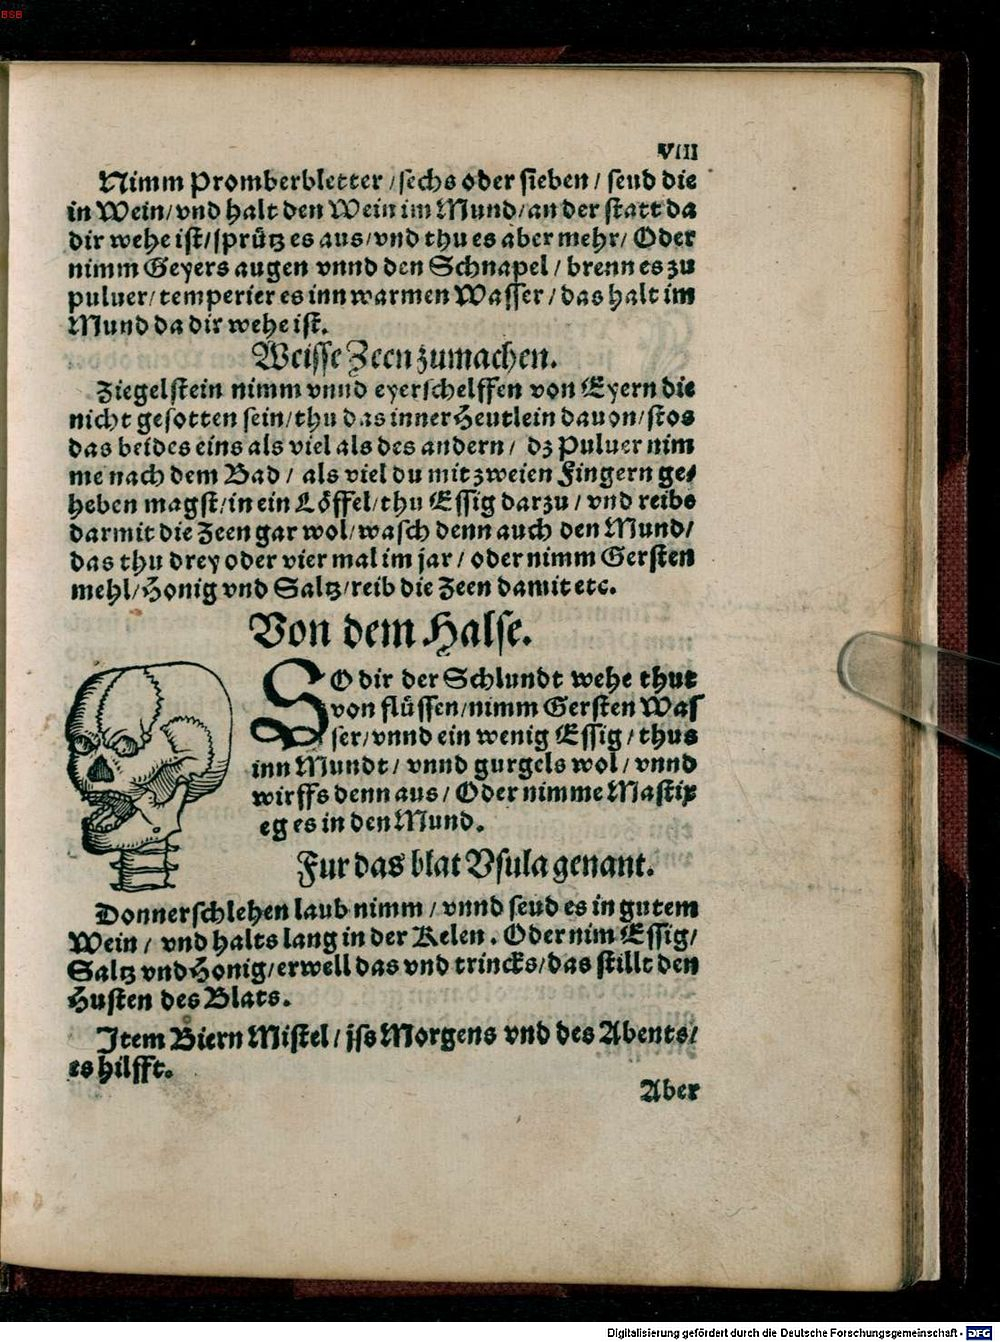 BSB
VIII
Nimm Promberbletter / sechs oder sieben / seud die
in Wein / vnd halt den Wein im Mund / an der statt da
dir wehe ist / sprütz es aus / vnd thu es aber mehr / Oder
nimm Geyers augen vnnd den Schnapel / brenn es zu
puluer / temperier es inn warmen Wasser / das halt im
Mund da dir wehe ist.
Weisse Zeen zumachen.
Ziegelstein nimm vnnd eyerschelffen von Eyern die
nicht gesotten sein / thu das inner Heutlein dauon / stos
das beides eins als viel als des andern / dz Puluer nim
me nach dem Bad / als viel du mit zweien Fingern ge⸗
heben magst / in ein Löffel / thu Essig darzu / vnd reibe
darmit die Zeen gar wol / wasch denn auch den Mund /
das thu drey oder vier mal im jar / oder nimm Gersten
mehl / Honig vnd Saltz / reib die Zeen damit etc.
Von dem Halse.
SO dir der Schlundt wehe thut
von flüssen / nimm Gersten Was
ser / vnnd ein wenig Essig / thus
inn Mundt / vnnd gurgels wol / vnnd
wirffs denn aus / Oder nimme Mastix
eg es in den Mund.
Fur das blat Vsula genant.
Donnerschlehen laub nimm / vnnd seud es in gutem
Wein / vnd halts lang in der Kelen. Oder nim Essig /
Saltz vnd Honig / erwell das vnd trincks / das stillt den
Husten des Blats.
Item Biern Mistel / jss Morgens vnd des Abents /
es hilfft.
Aber
Digitalisierung gefördert durch die Deutsche Forschungsgemeinschaft - DFG